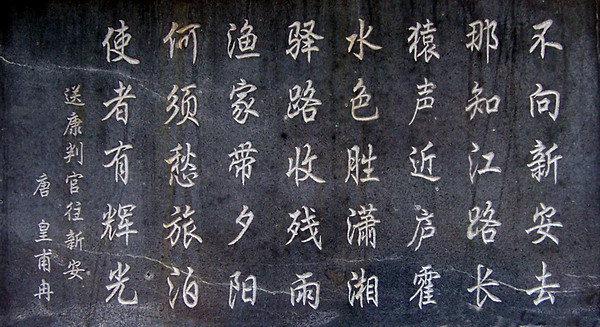 不向新安去
那知江路长
猿声近庐霍
水色胜潇湘
驿路收残雨
渔家带夕阳
何须愁旅泊
使者有辉光
送康判官往新安
唐 皇甫冉